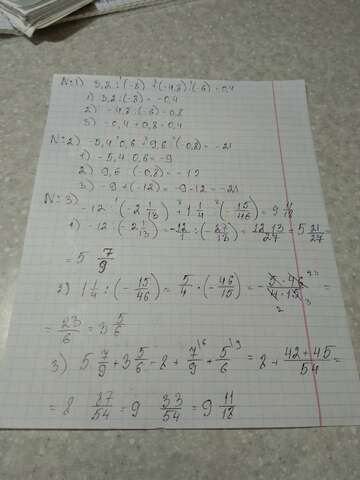 N: 1) 3,2 : (-8) + (-4,8) : (-6) = 0,4
1) 3,2 : (-8) = -0,4
2) -4,8 : (-6) = 0,8
3) -0,4 + 0,8 = 0,4
N: 2) -5,4 : 0,6 + 9,6 : (-0,8) = -21
1) -5,4 : 0,6 = -9
2) 9,6 : (-0,8) = -12
3) -9 + (-12) = -9 - 12 = -21
N: 3)
-12 : (-2 1/13) + 1 1/4 : (-15/46) = 9 11/18
1) -12 : (-2 1/13) = -12/1 : (-27/13) = 12·13/27 = 5 21/27 =
= 5 7/9
2) 1 1/4 : (-15/46) = 5/4 · (-46/15) = -5·46/4·15 =
= 23/6 = 3 5/6
3) 5 7/9 + 3 5/6 = 8 + 7/9 + 5/6 = 8 + 42+45/54 =
= 8 87/54 = 9 33/54 = 9 11/18